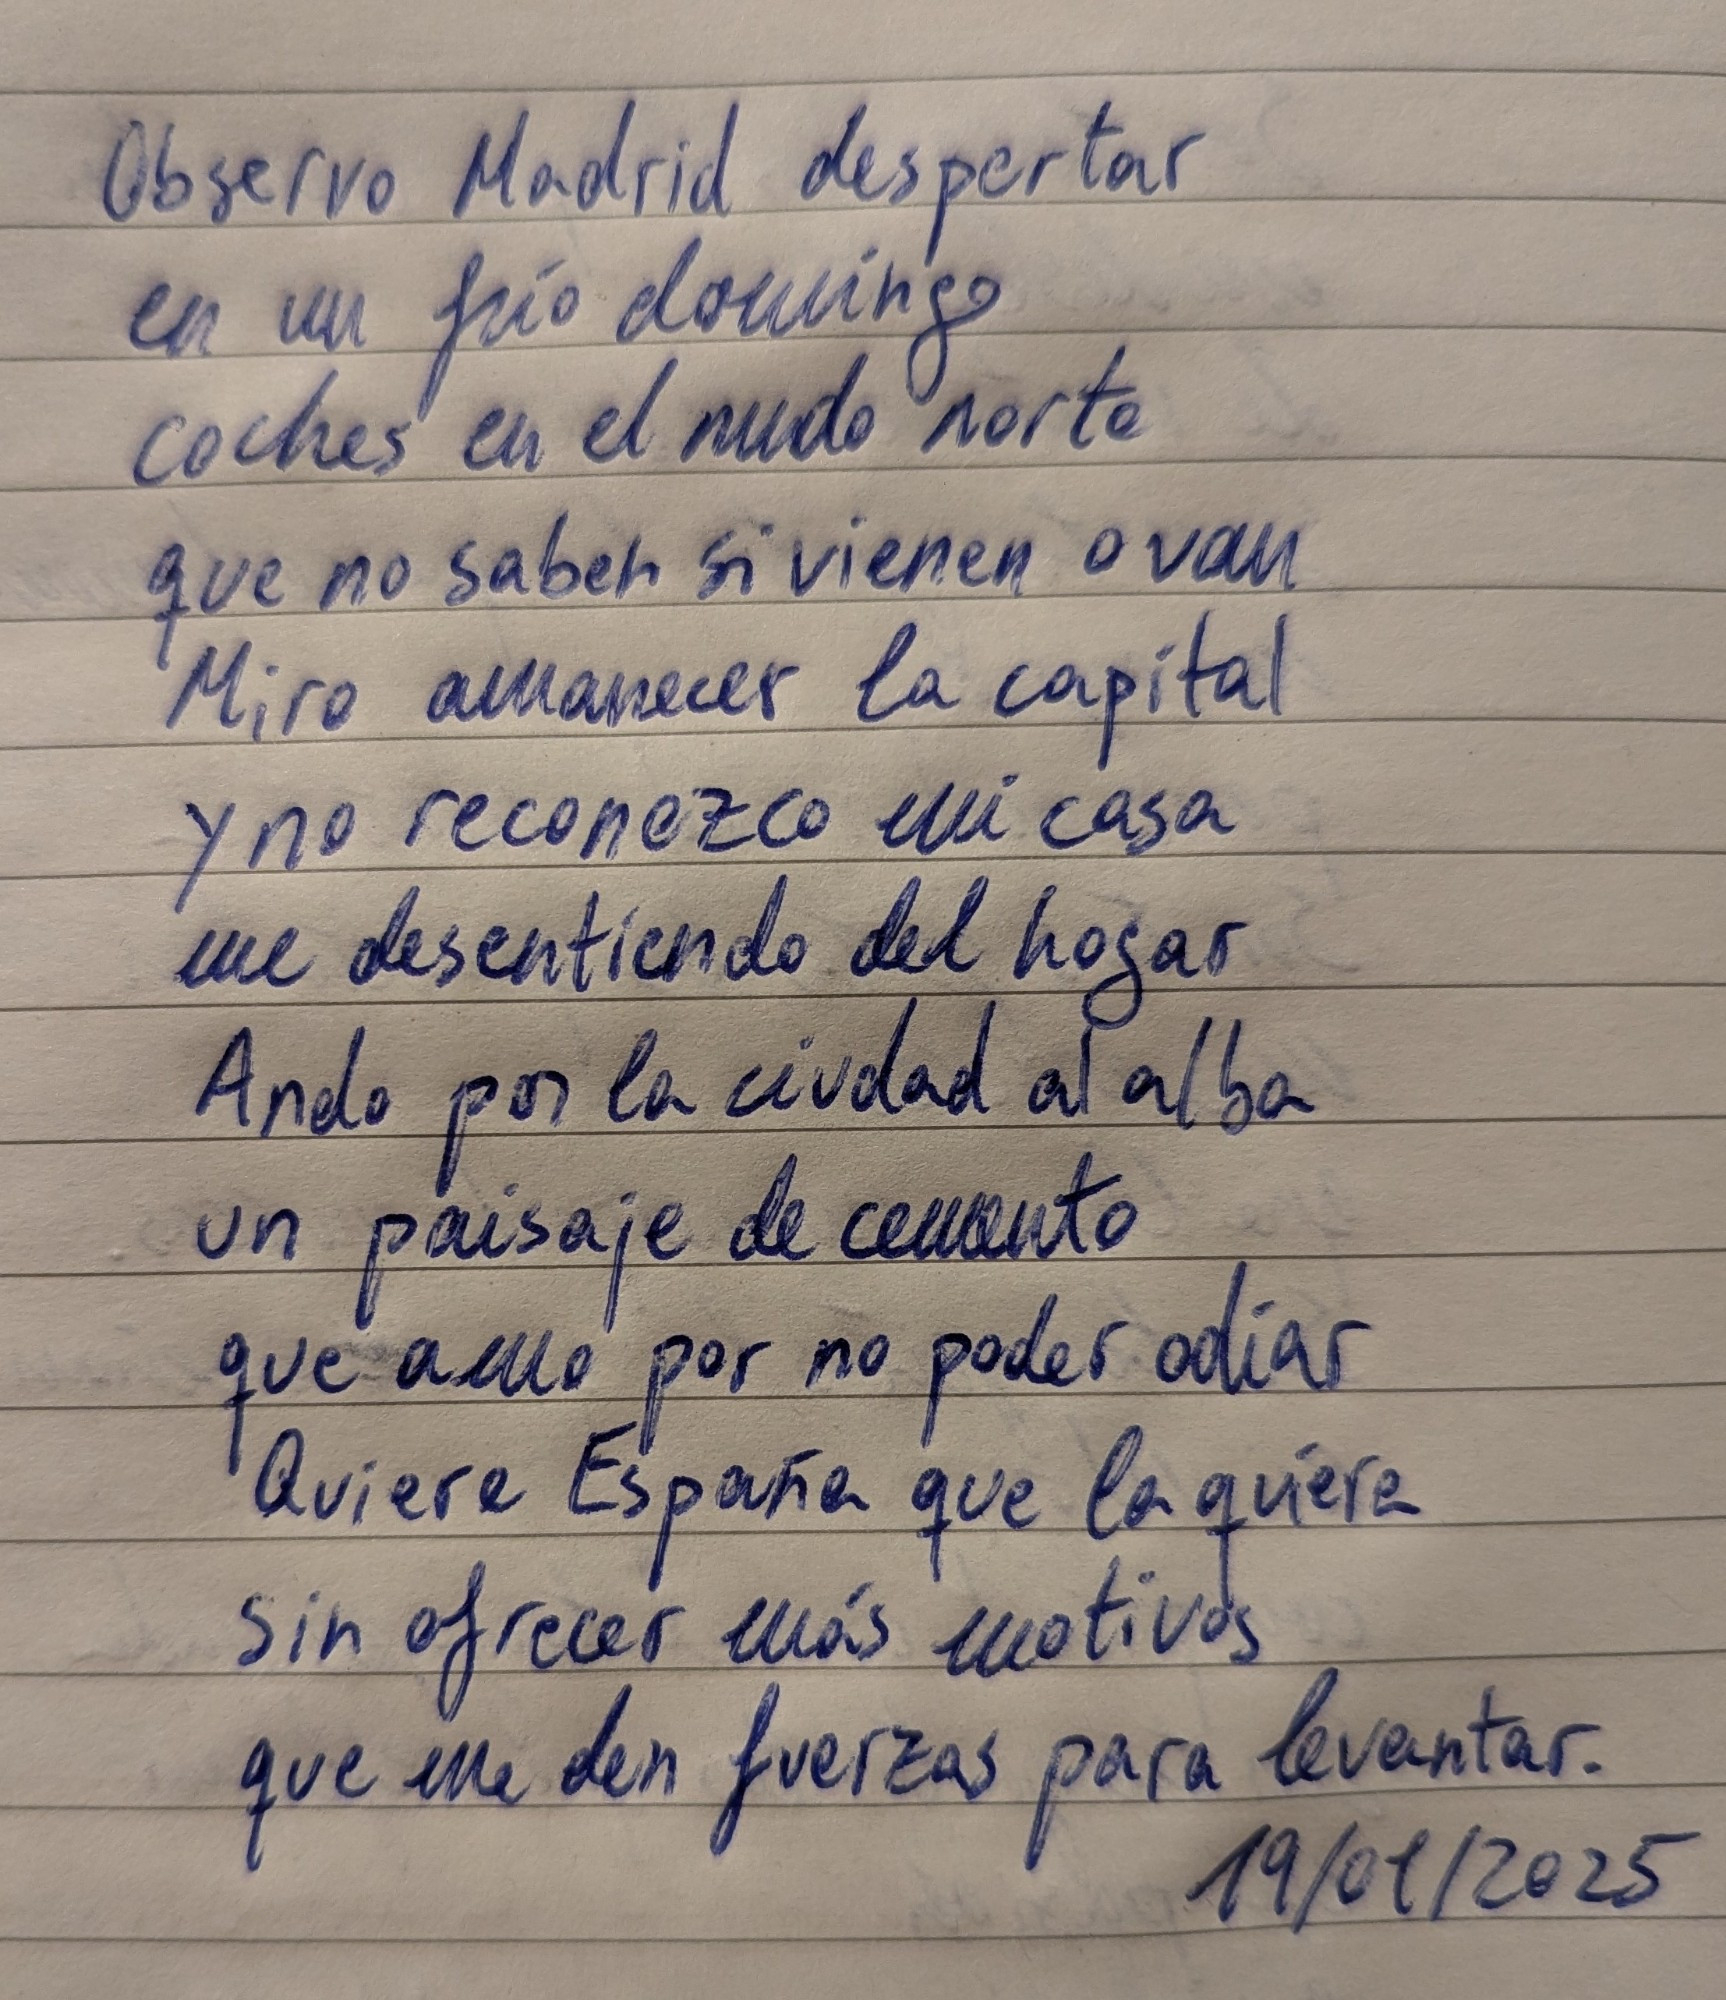 Observo Madrid despertar
en un frío domingo
coches en el nudo norte
que no saben si vienen o van
Miro amanecer la capital
y no reconozco mi casa
me desentiendo del hogar
Ando por la ciudad al alba
un paisaje de cemento
que amo por no poder odiar
Quiere España que la quiera
sin ofrecer más motivos
que me den fuerzas para levantar.
19/01/2025